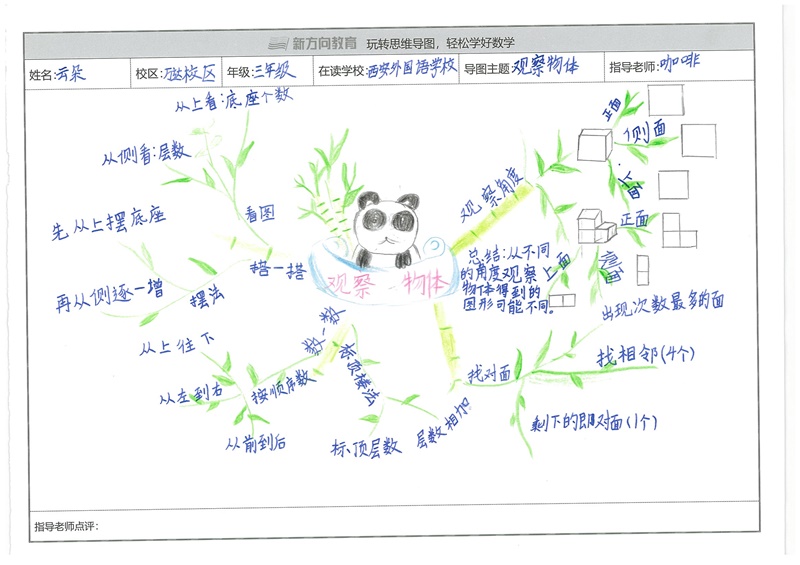 新方向教育 玩转思维导图，轻松学好数学
姓名:云朵 校区:万达校区 年级:三年级 在读学校:西安外国语学校 导图主题:观察物体 指导老师:咖啡
从上看:底座个数
从侧看:层数
看图
先从上摆底座
再从侧逐一增
摆法
搭一搭
观察 物体
观察角度
正面
侧面
上面
正面
上面
总结:从不同
的角度观察
物体得到的
图形可能不同。
数一数
从上往下
从左到右
从前到后
按顺序数
标顶层数
层数相加
找对面
出现次数最多的面
找相邻(4个)
剩下的即对面(1个)
指导老师点评: